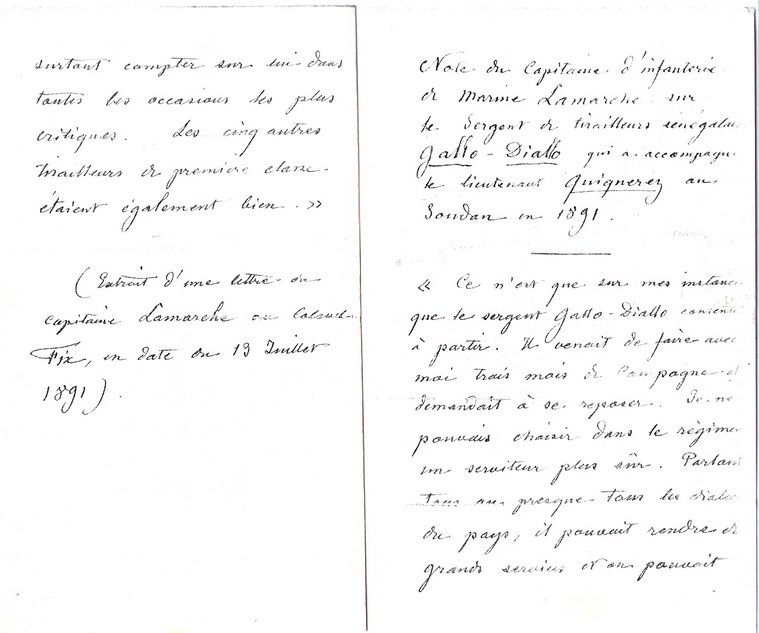 Note du Capitaine d'infanterie
de Marine Lamarche sur
le Sergent de tirailleurs sénégalais
Gallo-Diallo qui a accompagné
le lieutenant Quiquerez au
Soudan en 1891.
« Ce n'est que sur mes instances
que le sergent Gallo-Diallo consentit
à partir. Il venait de faire avec
moi trois mois de Campagne et
demandait à se reposer. Je ne
pouvais choisir dans le régiment
un serviteur plus sûr. Parlant
tous ou presque tous les dialectes
du pays, il pouvait rendre de
grands services et on pouvait
surtout compter sur lui dans
toutes les occasions les plus
critiques. Les cinq autres
tirailleurs de première classe
étaient également bien. »
(Extrait d'une lettre du
capitaine Lamarche au Colonel
Fix, en date du 13 Juillet
1891).